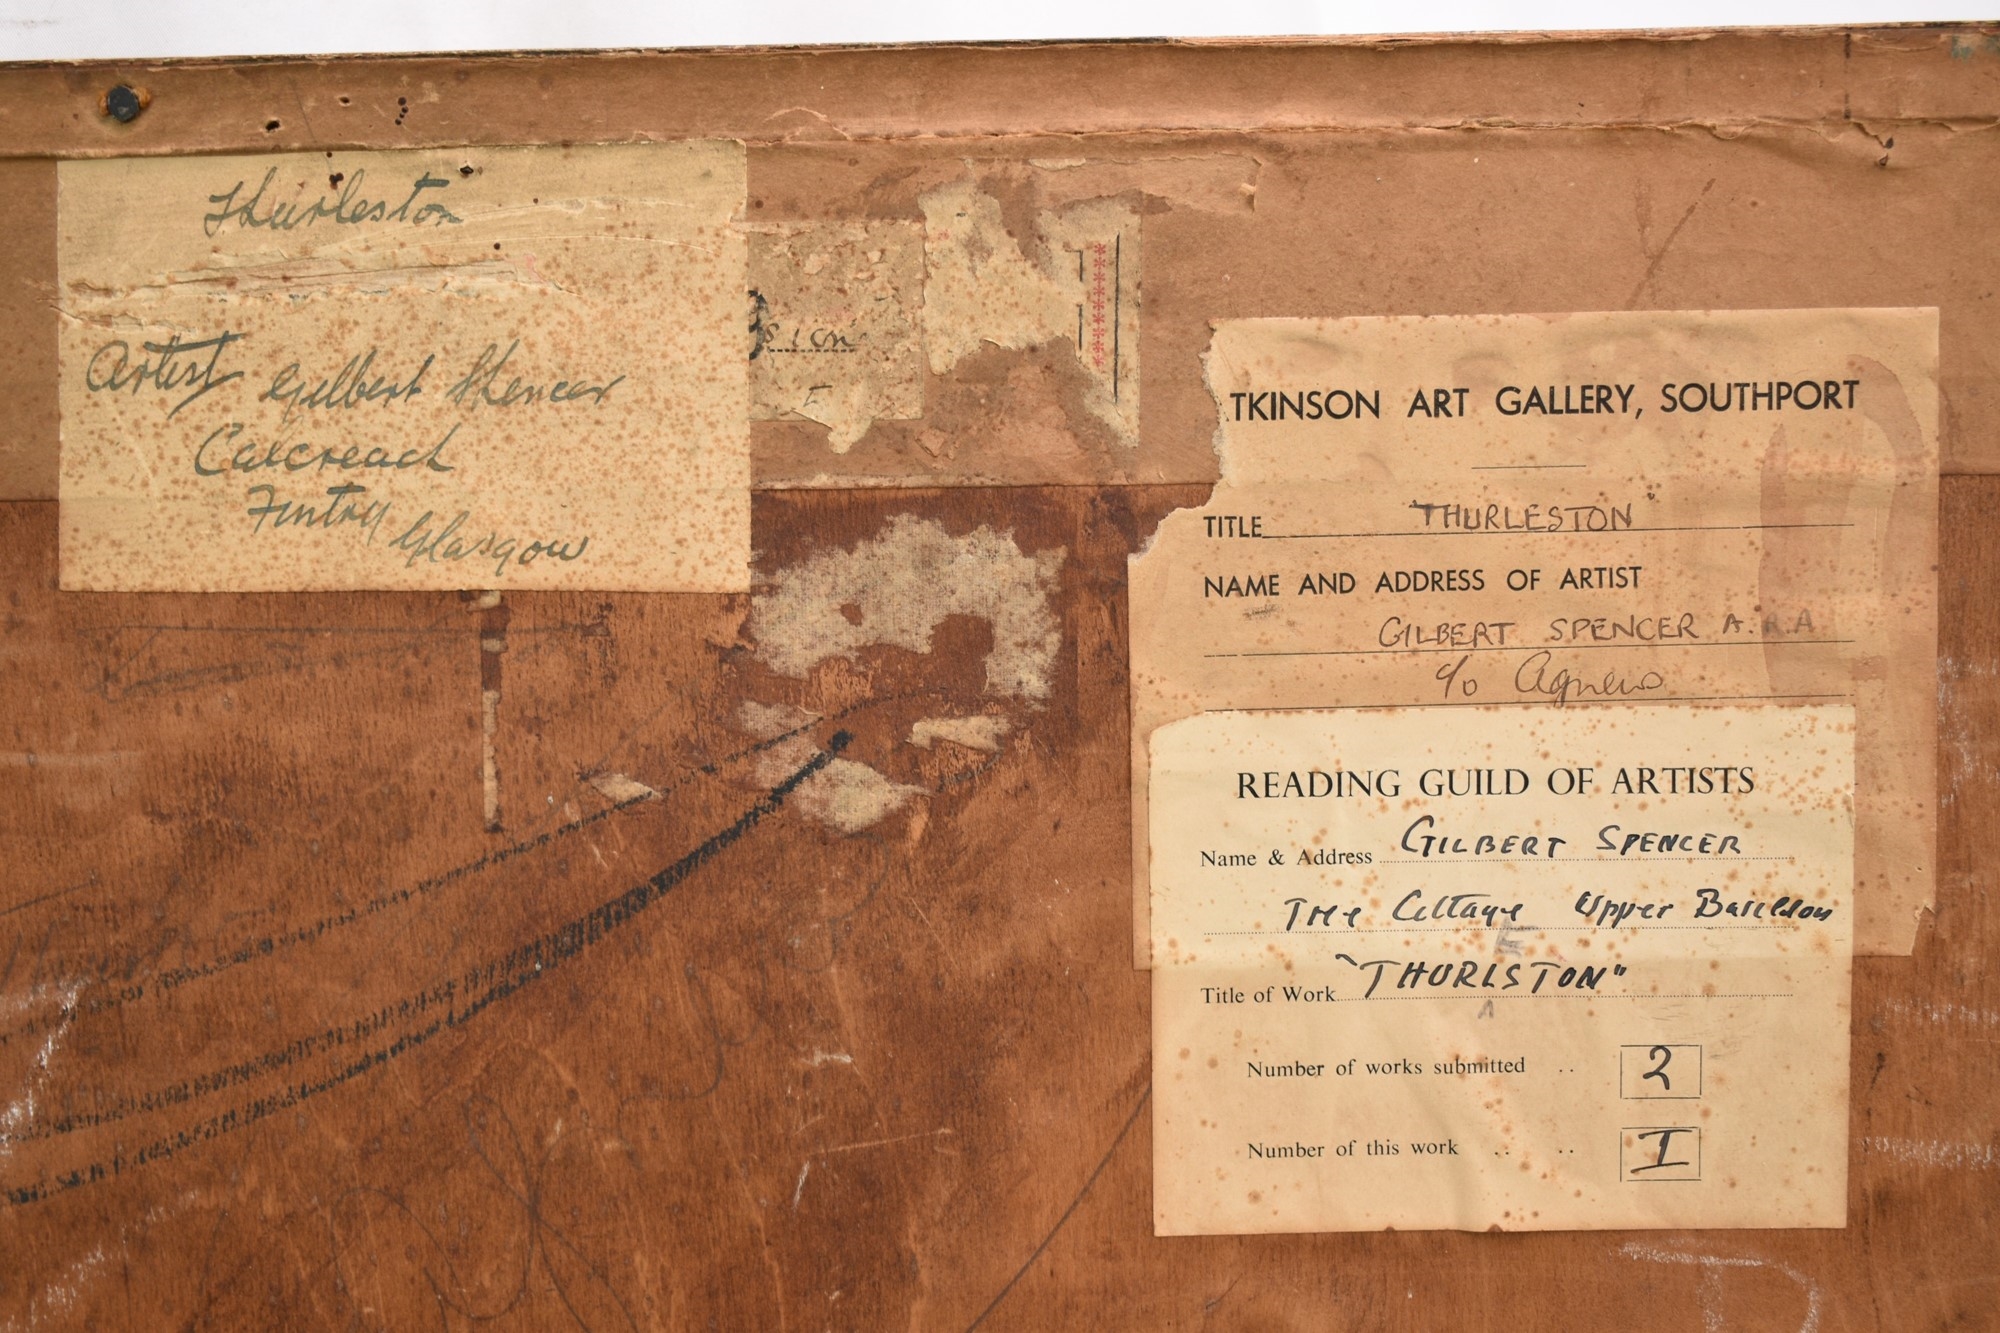 Thurleston
Artist Gilbert Spencer
Calcreach
Fintry
Glasgow
TKINSON ART GALLERY, SOUTHPORT
TITLE "THURLESTON"
NAME AND ADDRESS OF ARTIST
GILBERT SPENCER A.R.A
c/o Agnews
READING GUILD OF ARTISTS
Name & Address GILBERT SPENCER
Tree Cottage Upper Basildon
Title of Work "THURLSTON"
E
^
Number of works submitted .. 2
Number of this work .. .. I